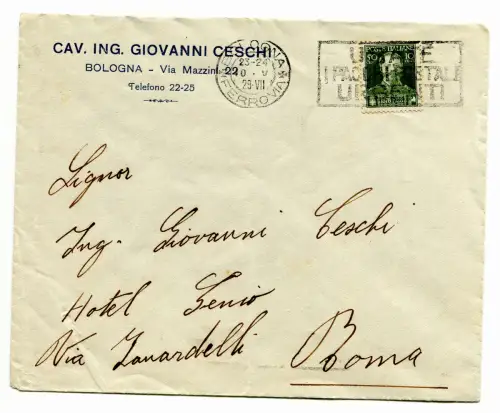 CAV. ING. GIOVANNI CESCHI
BOLOGNA - Via Mazzini 22
Telefono 22-25
23-24
FERROVIA
POSTE ITALIANE
50
Signor
Ing. Giovanni Ceschi
Hotel Genio
Via Zanardelli Roma